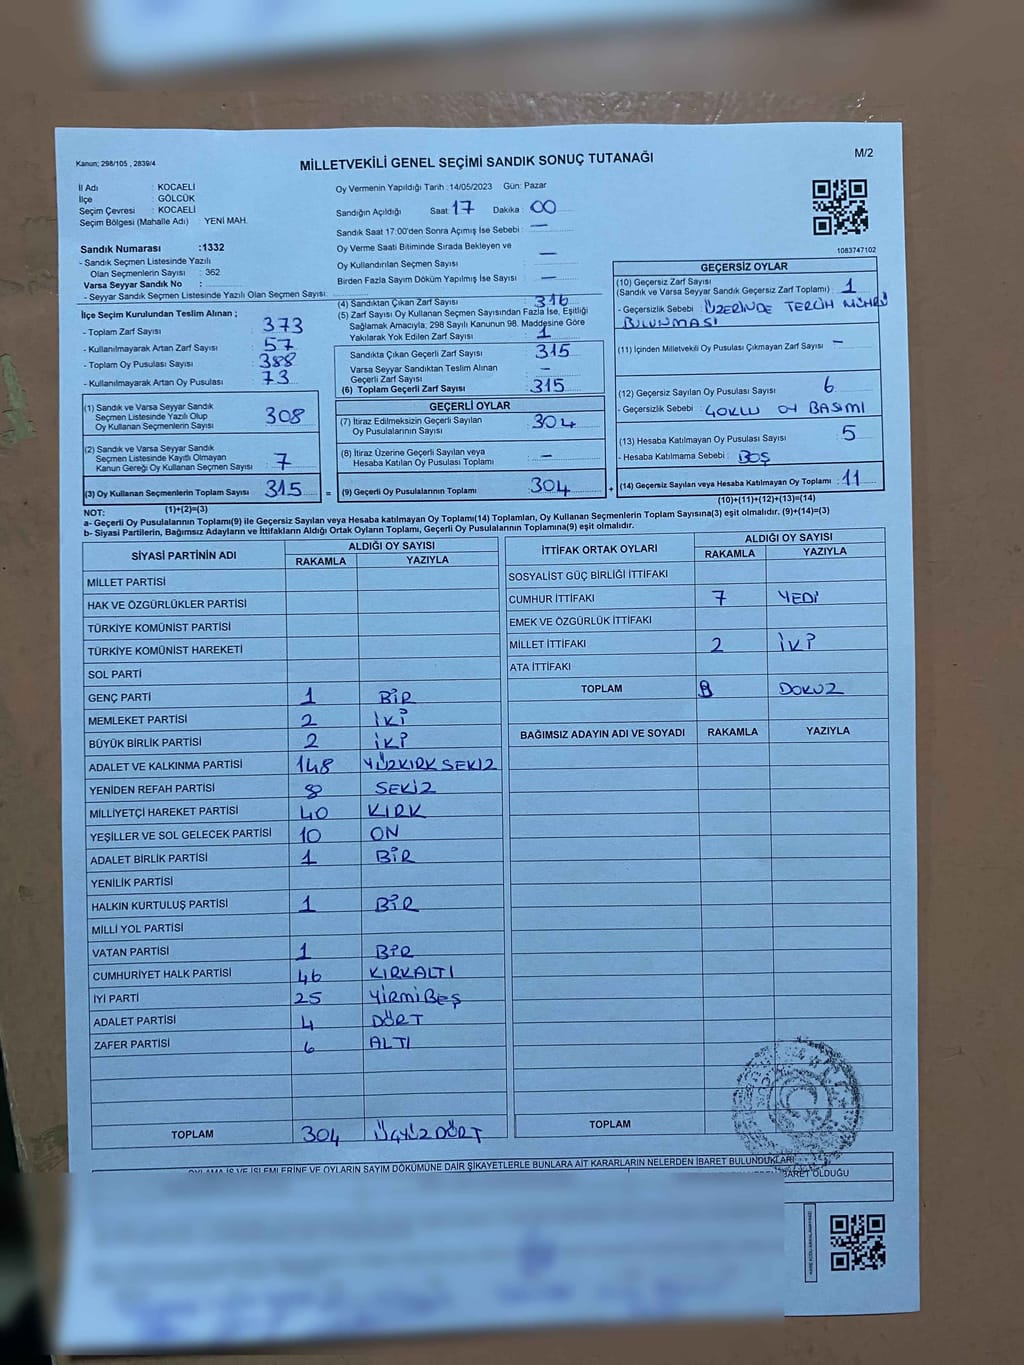 Kanun; 298/105 , 2839/4
MİLLETVEKİLİ GENEL SEÇİMİ SANDIK SONUÇ TUTANAĞI
M/2
İl Adı : KOCAELİ
İlçe : GÖLCÜK
Seçim Çevresi : KOCAELİ
Seçim Bölgesi (Mahalle Adı) : YENİ MAH.
Sandık Numarası :1332
- Sandık Seçmen Listesinde Yazılı
Olan Seçmenlerin Sayısı : 362
Varsa Seyyar Sandık No :
- Seyyar Sandık Seçmen Listesinde Yazılı Olan Seçmen Sayısı:
Oy Vermenin Yapıldığı Tarih : 14/05/2023 Gün: Pazar
Sandığın Açıldığı Saat 17 Dakika 00
Sandık Saat 17:00'den Sonra Açımış İse Sebebi : —
Oy Verme Saati Bitiminde Sırada Bekleyen ve
Oy Kullandırılan Seçmen Sayısı —
Birden Fazla Sayım Döküm Yapılmış İse Sayısı —
1083747102
İlçe Seçim Kurulundan Teslim Alınan ;
- Toplam Zarf Sayısı : 373
- Kullanılmayarak Artan Zarf Sayısı : 57
- Toplam Oy Pusulası Sayısı : 388
- Kullanılmayarak Artan Oy Pusulası : 73
(1) Sandık ve Varsa Seyyar Sandık
Seçmen Listesinde Yazılı Olup
Oy Kullanan Seçmenlerin Sayısı : 308
(2) Sandık ve Varsa Seyyar Sandık
Seçmen Listesinde Kayıtlı Olmayan
Kanun Gereği Oy Kullanan Seçmen Sayısı : 7
(3) Oy Kullanan Seçmenlerin Toplam Sayısı 315 =
(1)+(2)=(3)
(4) Sandıktan Çıkan Zarf Sayısı : 316
(5) Zarf Sayısı Oy Kullanan Seçmen Sayısından Fazla İse, Eşitliği
Sağlamak Amacıyla, 298 Sayılı Kanunun 98. Maddesine Göre
Yakılarak Yok Edilen Zarf Sayısı : 1
Sandıkta Çıkan Geçerli Zarf Sayısı : 315
Varsa Seyyar Sandıktan Teslim Alınan
Geçerli Zarf Sayısı : —
(6) Toplam Geçerli Zarf Sayısı : 315
GEÇERLİ OYLAR
(7) İtiraz Edilmeksizin Geçerli Sayılan
Oy Pusulalarının Sayısı : 304
(8) İtiraz Üzerine Geçerli Sayılan veya
Hesaba Katılan Oy Pusulası Toplamı : —
(9) Geçerli Oy Pusulalarının Toplamı : 304 +
GEÇERSİZ OYLAR
(10) Geçersiz Zarf Sayısı
(Sandık ve Varsa Seyyar Sandık Geçersiz Zarf Toplamı) : 1
- Geçersizlik Sebebi : ÜZERİNDE TERCİH MÜHRÜ
BULUNMASI
(11) İçinden Milletvekili Oy Pusulası Çıkmayan Zarf Sayısı : —
(12) Geçersiz Sayılan Oy Pusulası Sayısı : 6
- Geçersizlik Sebebi : ÇOKLU OY BASIMI
(13) Hesaba Katılmayan Oy Pusulası Sayısı : 5
- Hesaba Katılmama Sebebi : BOŞ
(14) Geçersiz Sayılan veya Hesaba Katılmayan Oy Toplamı : 11
(10)+(11)+(12)+(13)=(14)
NOT:
a- Geçerli Oy Pusulalarının Toplamı(9) ile Geçersiz Sayılan veya Hesaba katılmayan Oy Toplamı(14) Toplamları, Oy Kullanan Seçmenlerin Toplam Sayısına(3) eşit olmalıdır. (9)+(14)=(3)
b- Siyasi Partilerin, Bağımsız Adayların ve İttifakların Aldığı Ortak Oyların Toplamı, Geçerli Oy Pusulalarının Toplamına(9) eşit olmalıdır.
SİYASİ PARTİNİN ADI ALDIĞI OY SAYISI
RAKAMLA YAZIYLA
MİLLET PARTİSİ
HAK VE ÖZGÜRLÜKLER PARTİSİ
TÜRKİYE KOMÜNİST PARTİSİ
TÜRKİYE KOMÜNİST HAREKETİ
SOL PARTİ
GENÇ PARTİ 1 BİR
MEMLEKET PARTİSİ 2 İKİ
BÜYÜK BİRLİK PARTİSİ 2 İKİ
ADALET VE KALKINMA PARTİSİ 148 YÜZKIRK SEKİZ
YENİDEN REFAH PARTİSİ 8 SEKİZ
MİLLİYETÇİ HAREKET PARTİSİ 40 KIRK
YEŞİLLER VE SOL GELECEK PARTİSİ 10 ON
ADALET BİRLİK PARTİSİ 1 BİR
YENİLİK PARTİSİ
HALKIN KURTULUŞ PARTİSİ 1 BİR
MİLLİ YOL PARTİSİ
VATAN PARTİSİ 1 BİR
CUMHURİYET HALK PARTİSİ 46 KIRKALTI
İYİ PARTİ 25 YİRMİBEŞ
ADALET PARTİSİ 4 DÖRT
ZAFER PARTİSİ 6 ALTI
TOPLAM 304 ÜÇYÜZ DÖRT
İTTİFAK ORTAK OYLARI ALDIĞI OY SAYISI
RAKAMLA YAZIYLA
SOSYALİST GÜÇ BİRLİĞİ İTTİFAKI
CUMHUR İTTİFAKI 7 YEDİ
EMEK VE ÖZGÜRLÜK İTTİFAKI
MİLLET İTTİFAKI 2 İKİ
ATA İTTİFAKI
TOPLAM 9 DOKUZ
BAĞIMSIZ ADAYIN ADI VE SOYADI RAKAMLA YAZIYLA
TOPLAM
OYLAMA İŞ VE İŞLEMLERİNE VE OYLARIN SAYIM DÖKÜMÜNE DAİR ŞİKAYETLERLE BUNLARA AİT KARARLARIN NELERDEN İBARET BULUNDUKLARI
İBARET OLDUĞU